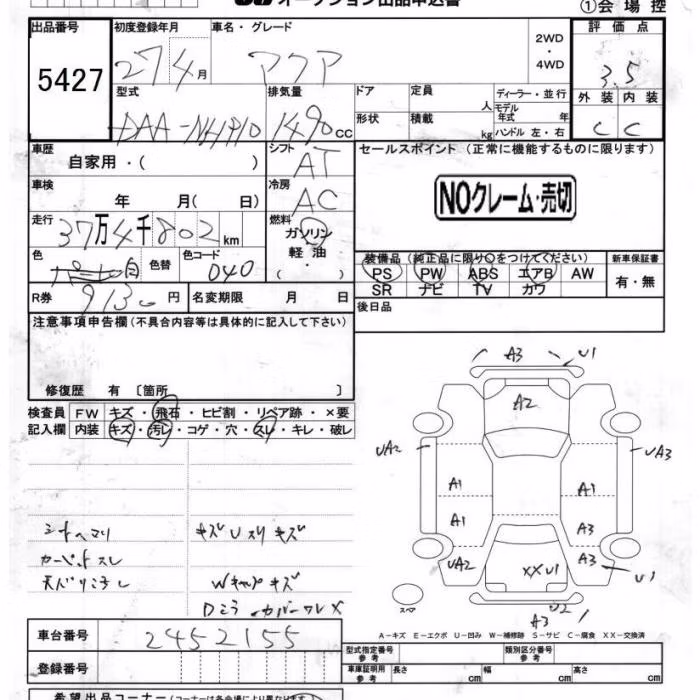 オークション出品申込書
①会場控
出品番号
5427
初度登録年月
27 4月
車名・グレード
アクア
2WD
・
4WD
評価点
3.5
外装 内装
C C
型式
DAA-NHP10
排気量
1490cc
ドア
定員
人
ディーラー・並行
モデル年式 年
形状
積載
kg
ハンドル 左・右
車歴
自家用・( )
シフト
AT
セールスポイント (正常に機能するものに限ります)
NOクレーム・売切
車検
年 月( 日)
冷房
AC
走行
37万4千802km
燃料
ガソリン
軽油
・( )
色
色替
色コード
040
装備品 (純正品に限り○をつけてください)
新車保証書
PS PW ABS エアB AW
SR ナビ TV カワ
有・無
R券
9130円
名変期限 月 日
後日品
注意事項申告欄(不具合内容等は具体的に記入して下さい)
修復歴 有 〔箇所 〕
検査員
記入欄
FW キズ・飛石・ヒビ割・リペア跡・×要
内装 キズ・汚レ・コゲ・穴・スレ・キレ・破レ
シートヘタリ
キズUスリキズ
カーペットスレ
Wキャップキズ
A3 U1
A2
UA2 UA3
A1 A1
A1 A3
UA2 XXU1 A3 U1
スペア
U2
A3
A−キズ E−エクボ U−凹み W−補修跡 S−サビ C−腐食 XX−交換済
車台番号
2452155
登録番号
型式指定番号
参考
類別区分番号
参考
車庫証明用
参考
長さ cm
幅 cm
高さ cm
希望出品コーナー(コーナーは各会場により異なります)